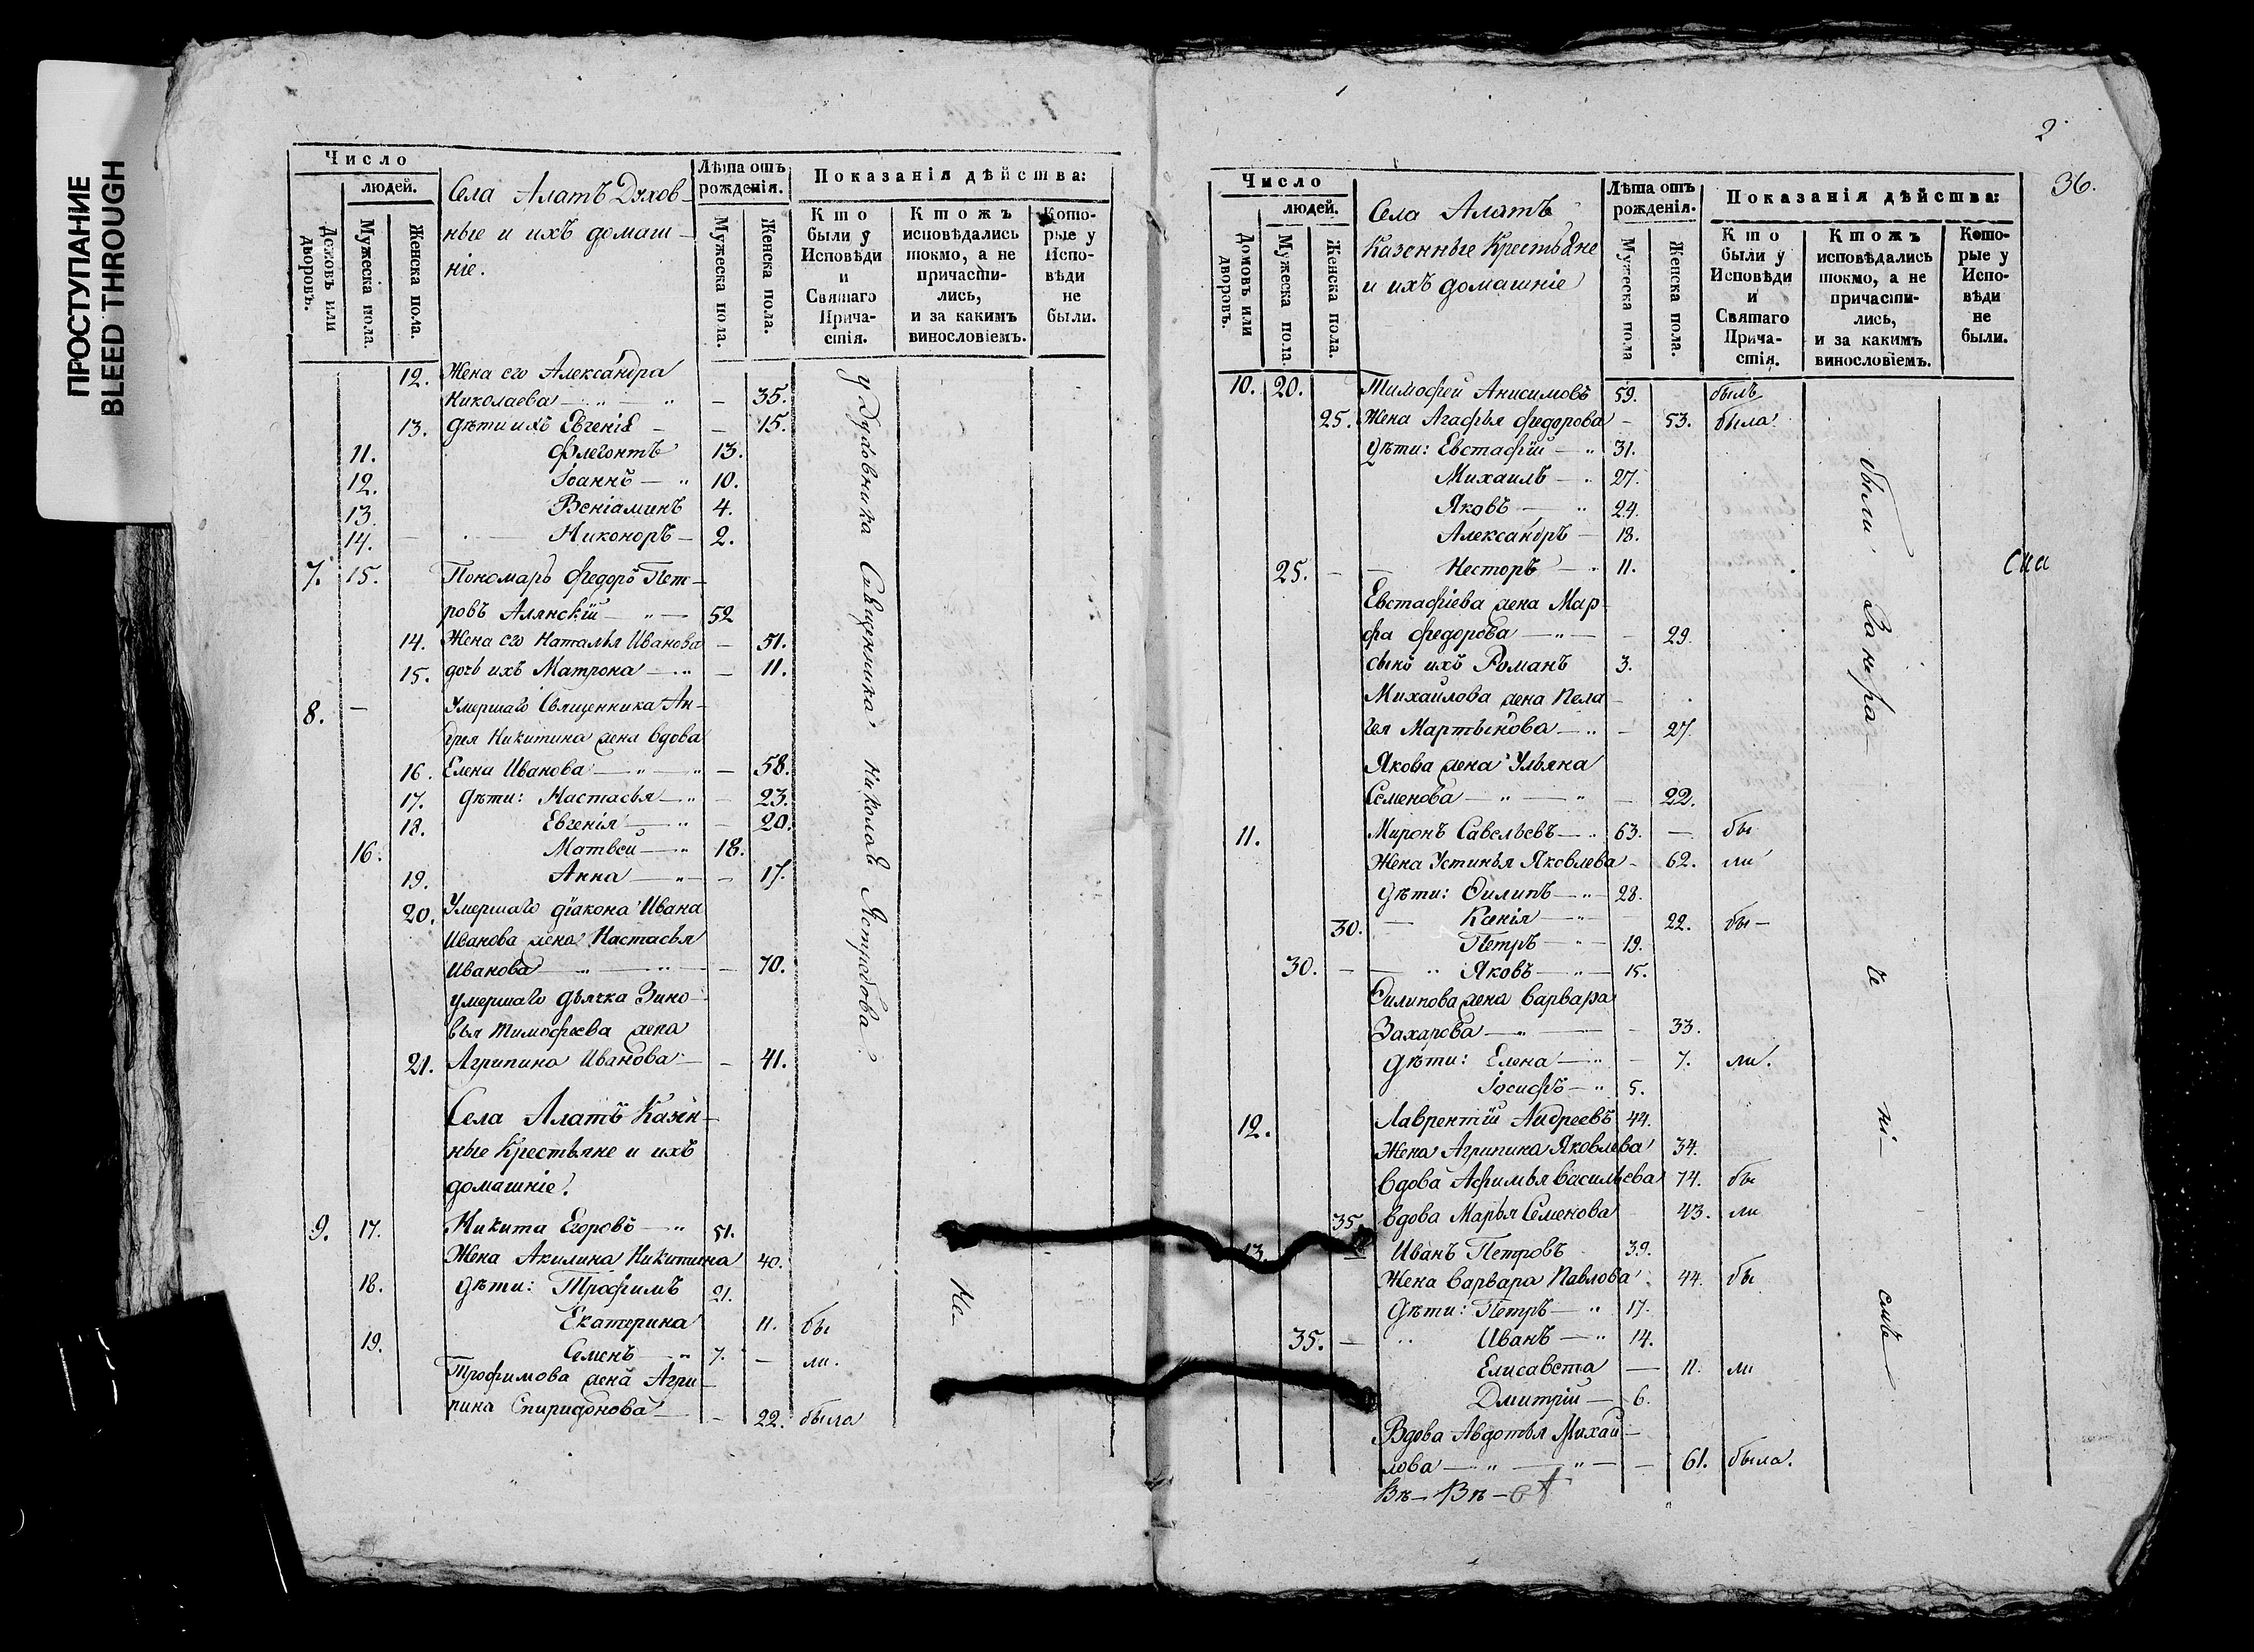 ПРОСТУПАНИЕ
BLEED THROUGH
Число
людей.
Домовъ или дворовъ.
Мужеска пола.
Женска пола.
Села Алатъ Духов-
ные и ихъ домаш-
ніе.
Лѣта отъ рожденія.
Мужеска пола.
Женска пола.
Показанія дѣйства:
Кто были у Исповѣди и Святаго Причастія.
Ктожъ исповѣдались токмо, а не причастились, и за какимъ винословіемъ.
Которые у Исповѣди не были.
12. Жена его Александра
Николаева — „ — „ — 35.
13. Дѣти ихъ Евгенія — — 15.
11. Флегонтъ 13.
12. Іоаннъ — „ 10.
13 Веніаминъ 4.
14. Никоноръ — 2.
7. 15. Пономарь Федоръ Пет-
ровъ Алянскій — „ — 52
14. Жена его Наталья Иванова — 51.
15. дочь ихъ Матрона — „ — 11.
8. — Умершаго Священника Ан-
дрея Никитина жена вдова
16. Елена Иванова — „ — „ — 58.
17. Дѣти: Настасья — „ — 23.
18. Евгенія — „ — 20.
16. Матвей — „ 18.
19. Анна — „ — 17.
20. Умершаго діакона Ивана
Иванова жена Настасья
Иванова — „ — „ — — 70.
умершаго дьячка Зино-
вья Тимофеева жена
21. Агрипина Иванова — — 41.
у Духовника Священника Николая Ястребова.
Села Алатъ Казен-
ные Крестьяне и ихъ
домашніе.
9. 17. Никита Егоровъ — „ 51.
Жена Акилина Никитина 40.
18. Дѣти: Трофимъ 21.
Екатерина 11. бы
19. Семенъ — „ 7. — ли.
Трофимова жена Агри-
пина Спиридонова — — 22. была
Не
2
36.
Число
людей.
Домовъ или дворовъ.
Мужеска пола.
Женска пола.
Села Алатъ
Казенные Крестьяне
и ихъ домашніе
Лѣта отъ рожденія.
Мужеска пола
Женска пола.
Показанія дѣйства:
Кто были у Исповѣди и Святаго Причастія.
Ктожъ исповѣдались токмо, а не причастились, и за какимъ винословіемъ.
Которые у Исповѣди не были.
10. 20. Тимофей Анисимовъ 59. былъ
25. Жена Агафья Федорова — 53. была
Дѣти: Евстафій — „ 31.
Михаилъ — „ 27.
Яковъ — „ 24.
Александръ — 18.
25. — — Несторъ — „ 11.
Евстафіева жена Мар-
фа Федорова — „ — — 29.
сынъ ихъ Романъ 3.
Михайлова жена Пела-
гея Мартынова — „ — 27.
Якова жена Ульяна
Семенова — „ — „ — 22.
11. Миронъ Савельевъ — „ 63. — бы
Жена Устинья Яковлева — 62. ли
Дѣти: Филипъ — „ — 28.
30. — Ксенія — „ — 22. бы —
Петръ — „ — 19.
30. — — „ Яковъ — „ — 15.
Филипова жена Варвара
Захарова — „ — — 33.
Дѣти: Елена — „ — 7. ли.
Іосифъ — „ 5.
12. Лаврентій Андреевъ 44.
Жена Агрипина Яковлева 34.
Вдова Афимья Васильева 74. бы
35. вдова Марья Семенова 43. ли
13. Иванъ Петровъ 39.
Жена Варвара Павлова 44. бы
Дѣти: Петръ — „ 17.
35. — „ Иванъ — „ 14.
Елисавета — 11. ли
Дмитрій — 6.
Вдова Авдотья Михай-
лова — „ — „ — — 61. была.
были. За нера-
че
ні-
смъ